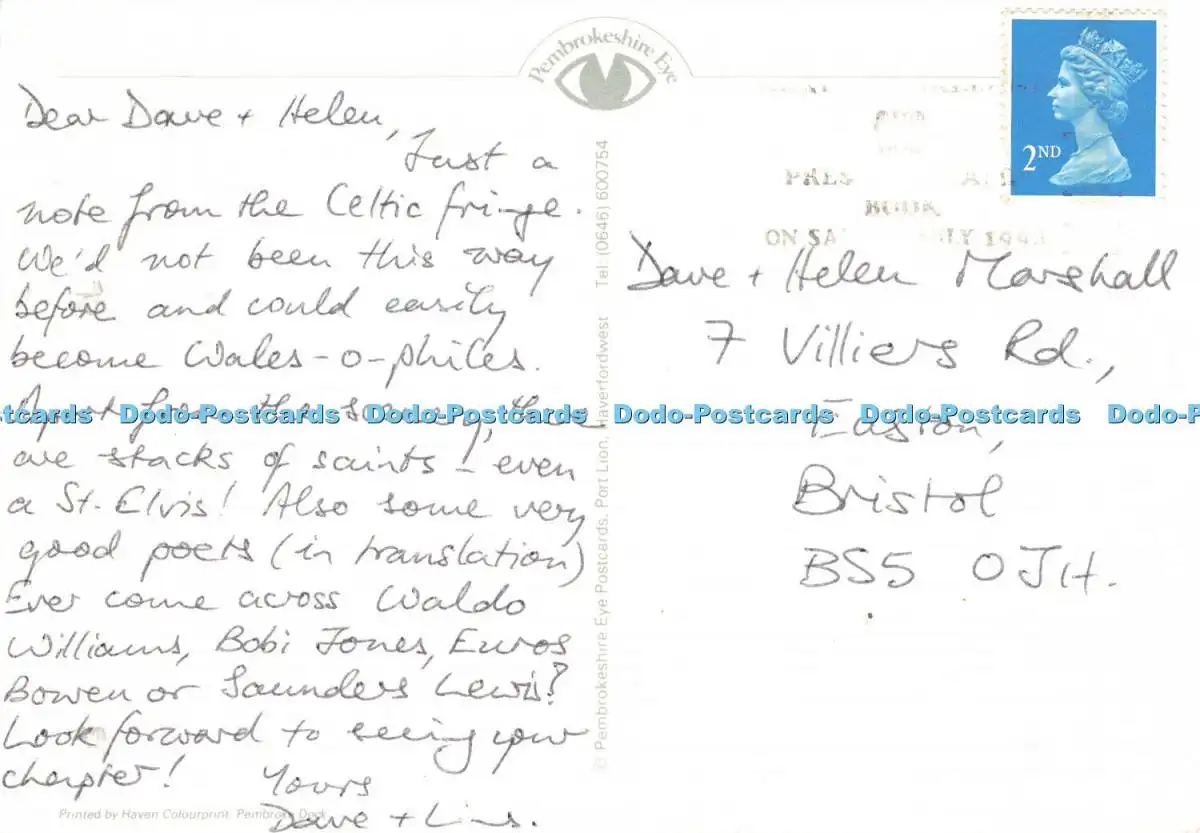 Pembrokeshire Eye
Dear Dave + Helen,
Just a
note from the Celtic fringe.
We'd not been this way
before and could easily
become Wales-o-philes.
Apart from the scenery, there
are stacks of saints – even
a St. Elvis! Also some very
good poets (in translation)
Ever come across Waldo
Williams, Bobi Jones, Euros
Bowen or Saunders Lewis?
Look forward to seeing your
chapter!
Yours
Dave +
Printed by Haven Colourprint, Pembroke Dock
© Pembrokeshire Eye Postcards, Port Lion, Haverfordwest Tel: (0646) 600754
2ND
BOOK
ON
Dave + Helen Marshall
7 Villiers Rd.,
Easton,
Bristol
BS5 0JH.
Dodo-Postcards Dodo-Postcards Dodo-Postcards Dodo-Postcards